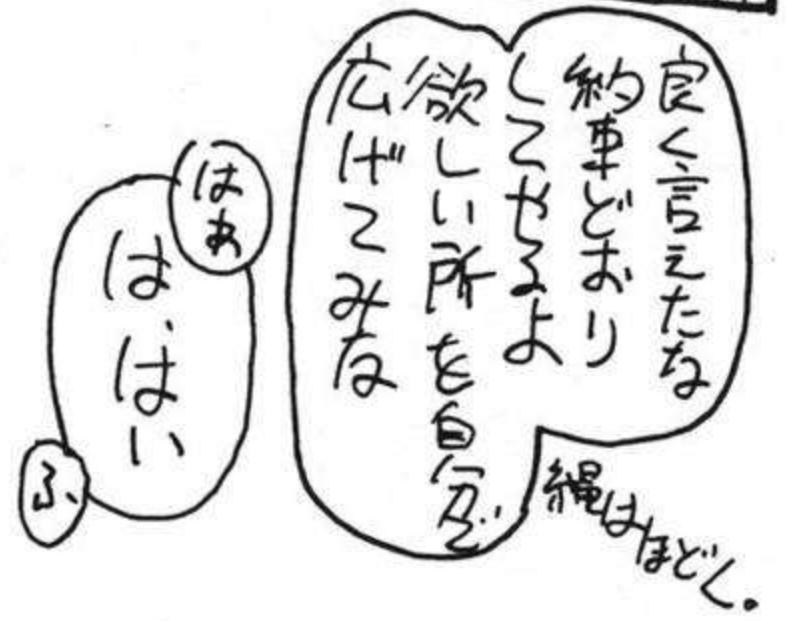 良く言えたな
約束どおり
してやるよ
欲しい所を自分で
広げてみな
縄はほどく。
はぁ
は、はい
ふ、